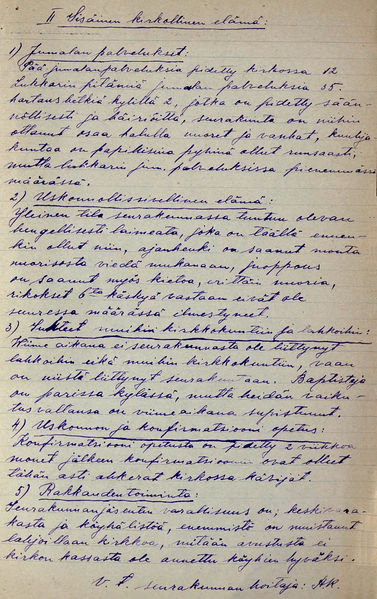 II Sisäinen kirkollinen elämä:
1) Jumalan palvelukset:
Pää jumalan palveluksia pidetty kirkossa 12
Lukkarin pitämiä jumalan palveluksia 35.
hartaus hetkiä kylillä 2, jotka on pidetty sään-
nöllisesti ja häiriöillä, seurakunta on niihin
ottanut osaa halulla nuoret ja vanhat, kuulija
kuntaa on papikisina pyhinä ollut runsaasti,
mutta lukkarin jum. palveluksissa pienemmässä
määrässä.
2) Uskonnollissiveellinen elämä:
Yleinen tila seurakunnassa tuntuu olevan
hengellisesti laimeata, joka on täällä ennen-
kin ollut niin, ajanhenki on saanut monta
nuorisosta viedä mukanaan, juoppous
on saanut myös kietoa, erittäin nuoria,
rikokset 6ta käskyä vastaan eivät ole
suuressa määrässä ilmestyneet.
3) Suhteet muihin kirkkokuntiin ja lahkoihin:
Viime aikana ei seurakunnasta ole liittynyt
lahkoihin eikä muihin kirkkokuntiin, vaan
on niistä liittynyt seurakuntaan. Baptisteja
on parissa kylässä, mutta heidän vaiku-
tusvaltansa on viime aikana supistunut.
4) Uskonnon ja konfirmatsiooni opetus:
Konfirmatsiooni opetusta on pidetty 2 viikkoa
monet jälkeen konfirmatsioonin ovat olleet
tähän asti ahkerat kirkossa käsijät.
5) Rakkauden toiminta:
Seurakunnan jäsenten varallisuus on, keskivara-
kasta ja köyhälistöä, enemmistö on muistanut
lahjoillaan kirkkoa, mitään avustusta ei
kirkon kassasta ole annettu köyhien hyväksi.
V. t. seurakunnan hoitaja: AR.